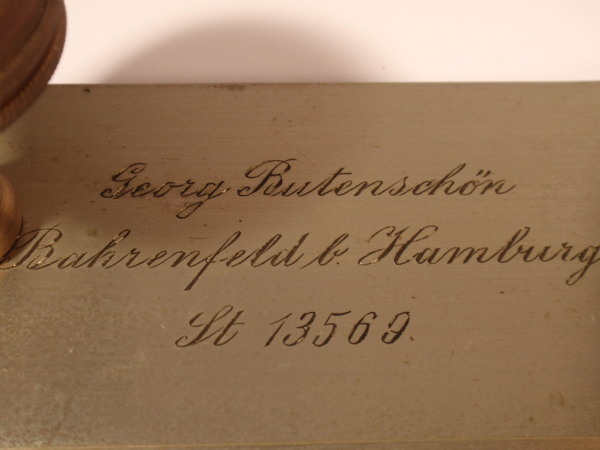 Georg Butenschön
Bahrenfeld b. Hamburg
St 13569.